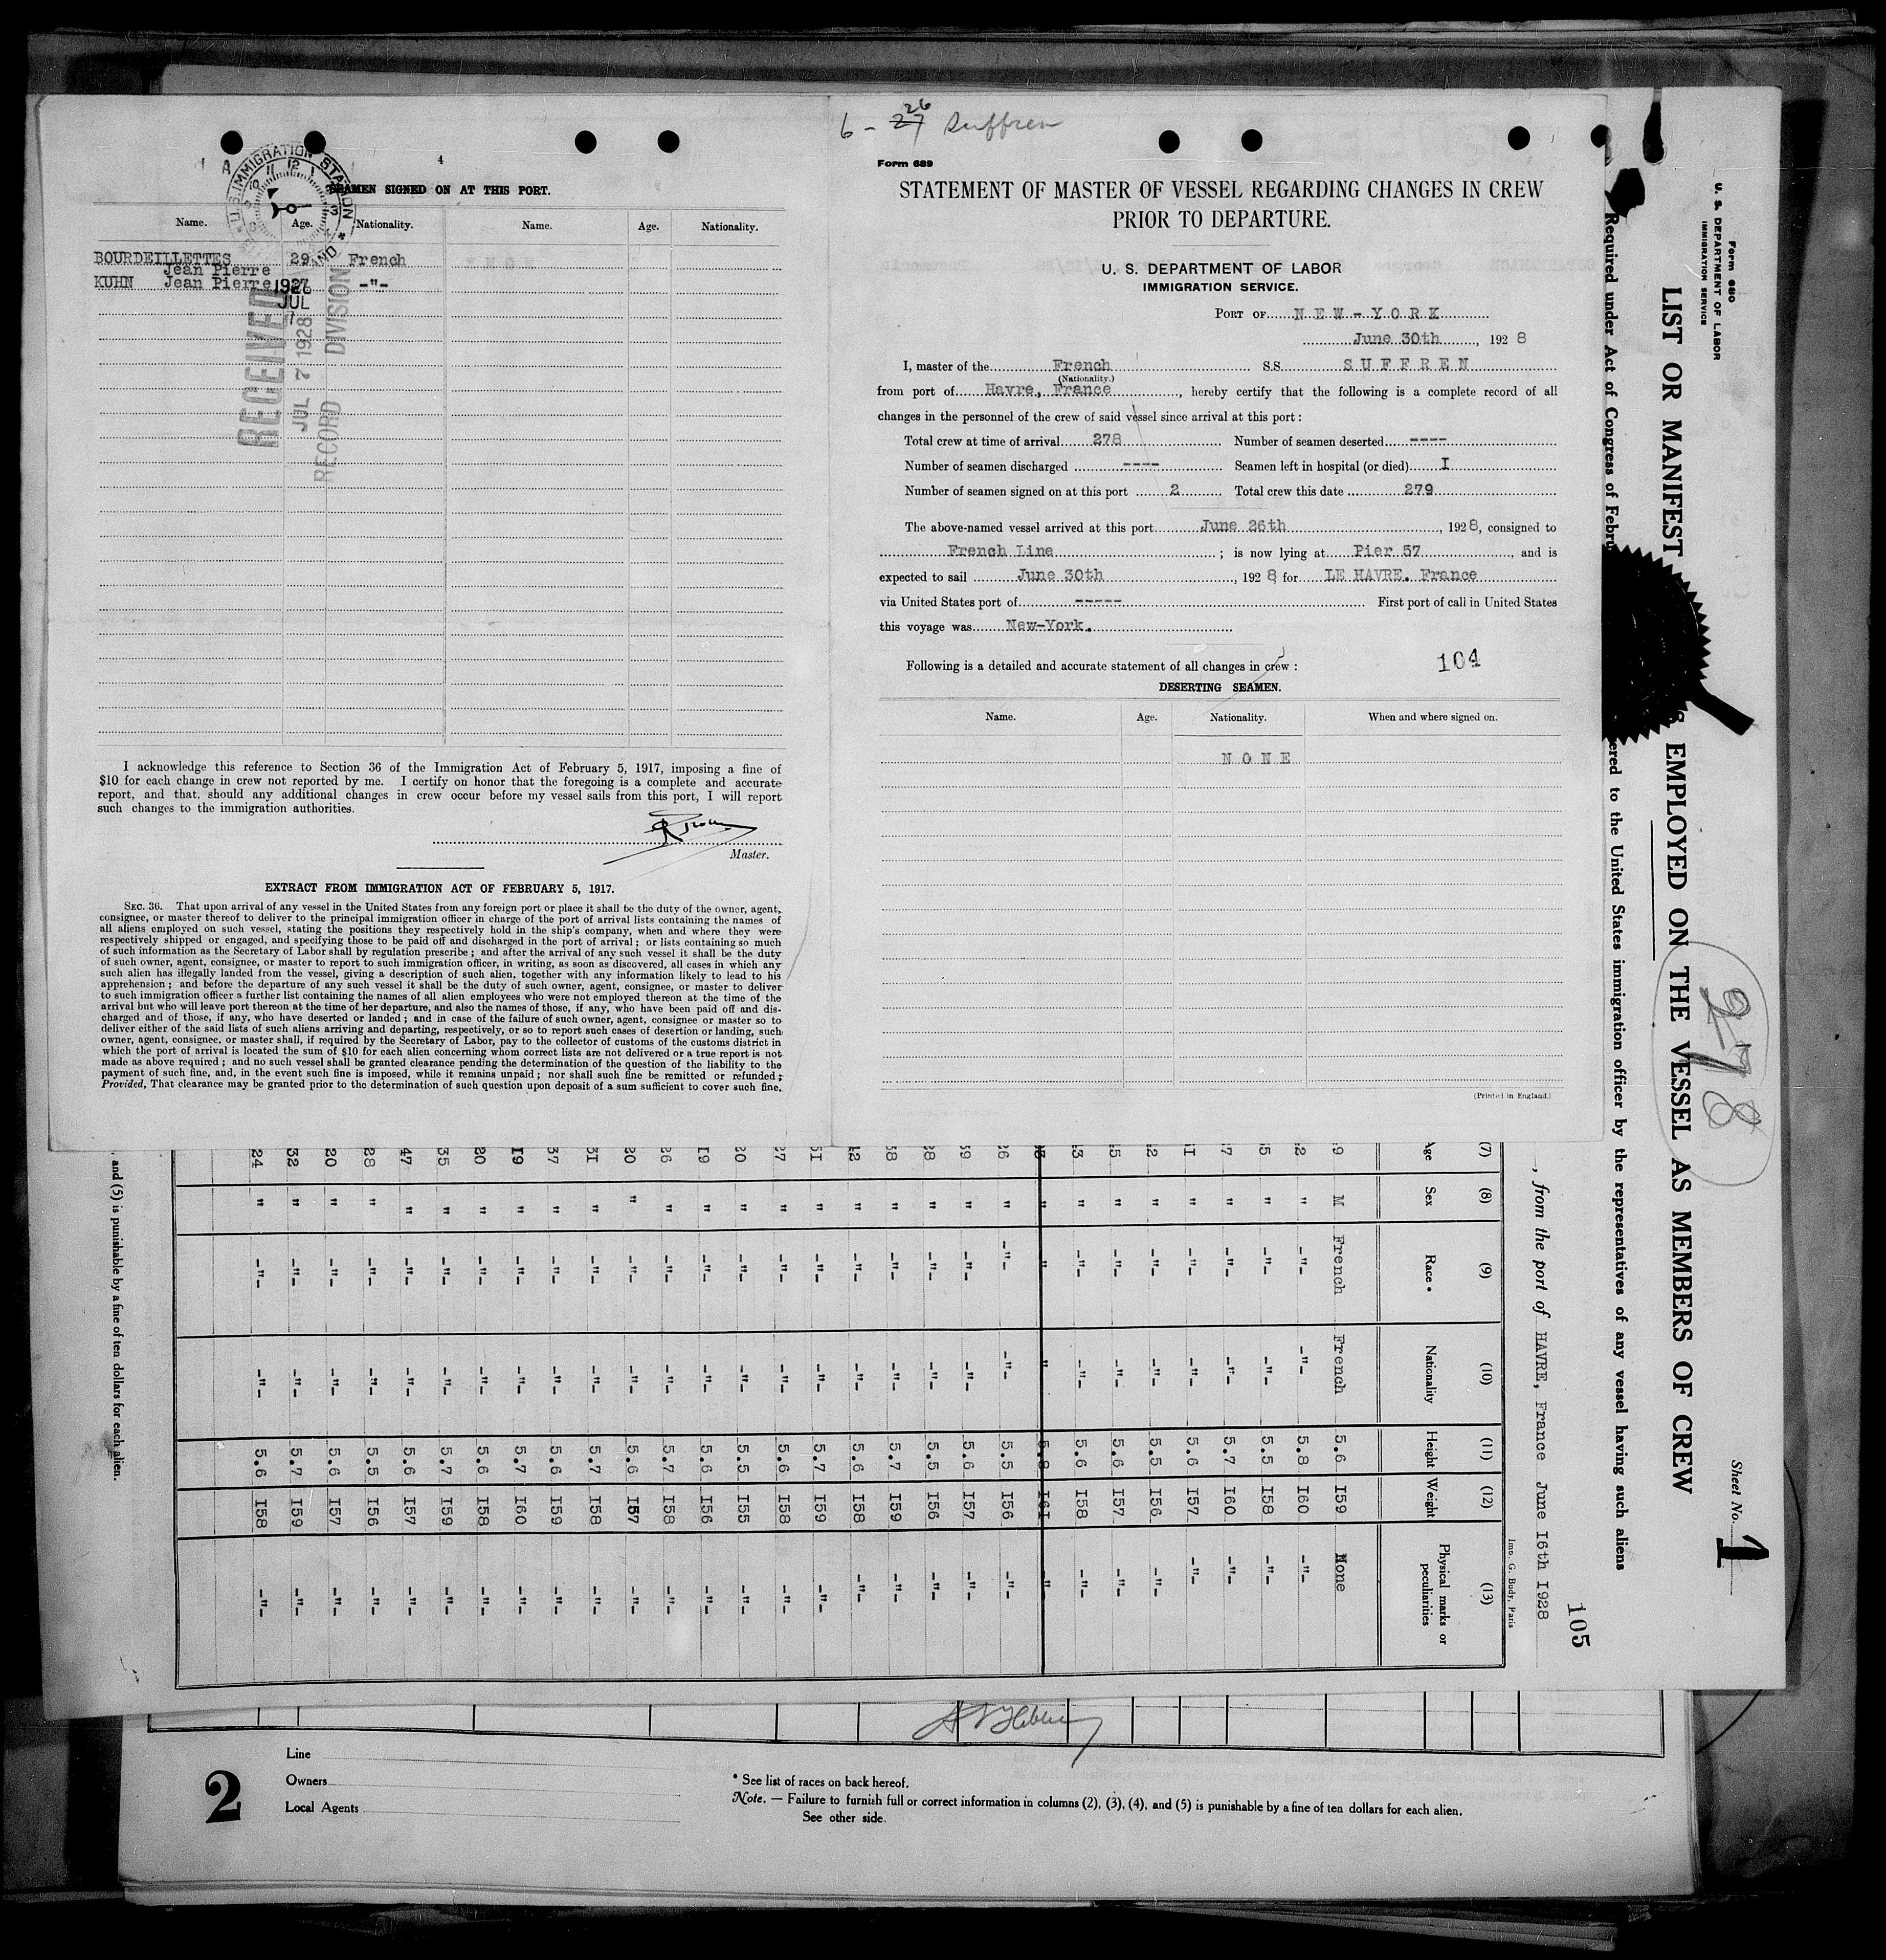 6 - 27 26 Suffren
4
SEAMEN SIGNED ON AT THIS PORT.
Name. Age. Nationality. Name. Age. Nationality.
BOURDEILLETTES 29 French
Jean Pierre
KUHN Jean Pierre 27 -"-
U.S. IMMIGRATION STATION
1928
JUL
7
RECEIVED
JUL 7 1928
RECORD DIVISION
I acknowledge this reference to Section 36 of the Immigration Act of February 5, 1917, imposing a fine of
$10 for each change in crew not reported by me. I certify on honor that the foregoing is a complete and accurate
report, and that should any additional changes in crew occur before my vessel sails from this port, I will report
such changes to the immigration authorities.
Master.
EXTRACT FROM IMMIGRATION ACT OF FEBRUARY 5, 1917.
SEC. 36. That upon arrival of any vessel in the United States from any foreign port or place it shall be the duty of the owner, agent,
consignee, or master thereof to deliver to the principal immigration officer in charge of the port of arrival lists containing the names of
all aliens employed on such vessel, stating the positions they respectively hold in the ship's company, when and where they were
respectively shipped or engaged, and specifying those to be paid off and discharged in the port of arrival; or lists containing so much
of such information as the Secretary of Labor shall by regulation prescribe; and after the arrival of any such vessel it shall be the duty
of such owner, agent, consignee, or master to report to such immigration officer, in writing, as soon as discovered, all cases in which any
such alien has illegally landed from the vessel, giving a description of such alien, together with any information likely to lead to his
apprehension; and before the departure of any such vessel it shall be the duty of such owner, agent, consignee, or master to deliver
to such immigration officer a further list containing the names of all alien employees who were not employed thereon at the time of the
arrival but who will leave port thereon at the time of her departure, and also the names of those, if any, who have been paid off and dis-
charged and of those, if any, who have deserted or landed; and in case of the failure of such owner, agent, consignee or master so to
deliver either of the said lists of such aliens arriving and departing, respectively, or so to report such cases of desertion or landing, such
owner, agent, consignee, or master shall, if required by the Secretary of Labor, pay to the collector of customs of the customs district in
which the port of arrival is located the sum of $10 for each alien concerning whom correct lists are not delivered or a true report is not
made as above required; and no such vessel shall be granted clearance pending the determination of the question of the liability to the
payment of such fine, and, in the event such fine is imposed, while it remains unpaid; nor shall such fine be remitted or refunded;
Provided, That clearance may be granted prior to the determination of such question upon deposit of a sum sufficient to cover such fine.
Form 689
STATEMENT OF MASTER OF VESSEL REGARDING CHANGES IN CREW
PRIOR TO DEPARTURE.
U. S. DEPARTMENT OF LABOR
IMMIGRATION SERVICE.
PORT OF NEW-YORK
June 30th, 1928
I, master of the French SS SUFFREN
(Nationality.)
from port of Havre, France, hereby certify that the following is a complete record of all
changes in the personnel of the crew of said vessel since arrival at this port:
Total crew at time of arrival 278 Number of seamen deserted ----
Number of seamen discharged ---- Seamen left in hospital (or died) I
Number of seamen signed on at this port 2 Total crew this date 279
The above-named vessel arrived at this port June 26th, 1928, consigned to
French Line; is now lying at Pier 57, and is
expected to sail June 30th, 1928 for LE HAVRE. France
via United States port of ----- First port of call in United States
this voyage was New-York.
Following is a detailed and accurate statement of all changes in crew:
104
DESERTING SEAMEN.
Name. Age. Nationality. When and where signed on.
NONE
(Printed in England.)
Form 680
U. S. DEPARTMENT OF LABOR
IMMIGRATION SERVICE
Sheet No. 1
278
LIST OR MANIFEST
EMPLOYED ON THE VESSEL AS MEMBERS OF CREW
Required under Act of Congress of Febru
ered to the United States immigration officer by the representatives of any vessel having such aliens
105
, from the port of HAVRE, France June I6th I928
Imp. G. Budy, Paris
(7) (8) (9) (10) (11) (12) (13)
Age Sex Race * Nationality Height Weight Physical marks or peculiarities
9 M French French 5.6 I59 None
2 " -"- -"- 5.8 I60 -"-
5 " -"- -"- 5.5 I58 -"-
7 " -"- -"- 5.7 I60 -"-
I " -"- -"- 5.6 I57 -"-
2 " -"- -"- 5.5 I56 -"-
5 " -"- -"- 5.6 I57 -"-
3 " -"- -"- 5.6 I58 -"-
" " " 5.8 I6I "
26 " -"- -"- 5.5 I56 -"-
39 " -"- -"- 5.6 I57 -"-
28 " -"- -"- 5.5 I56 -"-
38 " -"- -"- 5.7 I59 -"-
42 " -"- -"- 5.6 I58 -"-
5I " -"- -"- 5.7 I59 -"-
27 " -"- -"- 5.6 I58 -"-
20 " -"- -"- 5.5 I55 -"-
I9 " -"- -"- 5.6 I56 -"-
26 " -"- -"- 5.7 I58 -"-
20 " -"- -"- 5.6 I57 -"-
3I " -"- -"- 5.7 I58 -"-
37 " -"- -"- 5.6 I59 -"-
I9 " -"- -"- 5.7 I60 -"-
20 " -"- -"- 5.6 I58 -"-
35 " -"- -"- 5.7 I59 -"-
47 " -"- -"- 5.6 I57 -"-
28 " -"- -"- 5.5 I56 -"-
20 " -"- -"- 5.6 I57 -"-
32 " -"- -"- 5.7 I59 -"-
24 " -"- -"- 5.6 I58 -"-
, and (5) is punishable by a fine of ten dollars for each alien.
2
Line
Owners
Local Agents
* See list of races on back hereof.
Note. — Failure to furnish full or correct information in columns (2), (3), (4), and (5) is punishable by a fine of ten dollars for each alien.
See other side.